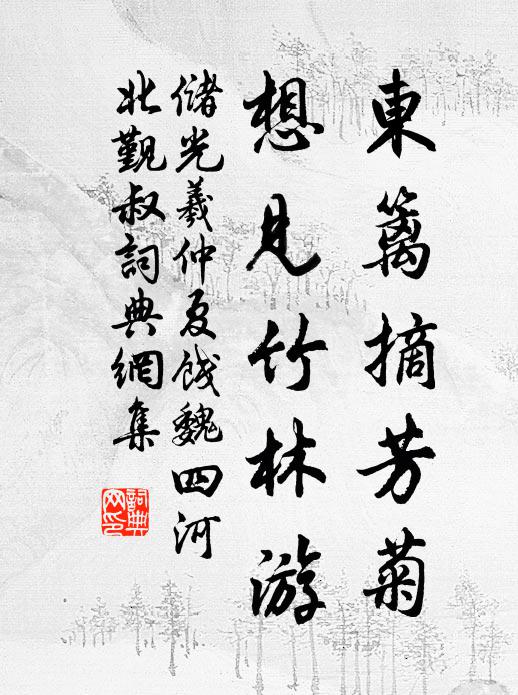 東籬摘芳菊
想見竹林游
儲光羲仲夏餞魏四河
北觐叔詞典網集
詞典网印